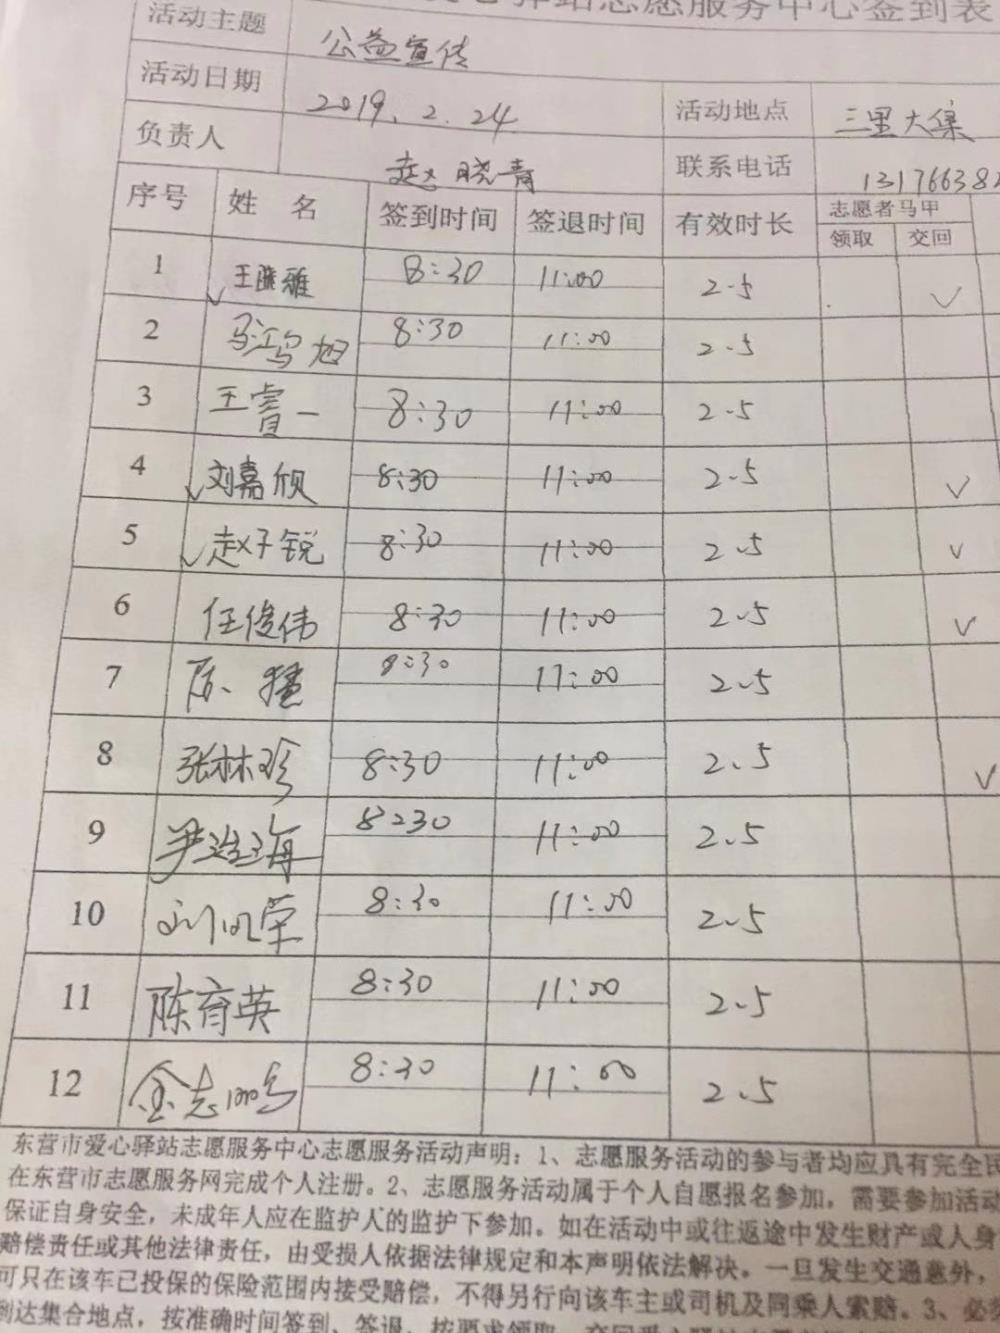 心驿站志愿服务中心签到表
活动主题 公益宣传
活动日期 2019.2.24 活动地点 三里大集
负责人 赵晓青 联系电话 131766382
序号 姓 名 签到时间 签退时间 有效时长 志愿者马甲
领取 交回
1 王 雅 8:30 11:00 2.5 √
2 旭 8:30 11:00 2.5
3 王睿一 8:30 11:00 2.5
4 √刘嘉颀 8:30 11:00 2.5 √
5 √赵子锐 8:30 11:00 2.5 √
6 任俊伟 8:30 11:00 2.5 √
7 8:30 11:00 2.5
8 张林珍 8:30 11:00 2.5 √
9 尹 海 8:30 11:00 2.5
10 刘 荣 8:30 11:00 2.5
11 陈育英 8:30 11:00 2.5
12 金志鹏 8:30 11:00 2.5
东营市爱心驿站志愿服务中心志愿服务活动声明：1、志愿服务活动的参与者均应具有完全民
在东营市志愿服务网完成个人注册。2、志愿服务活动属于个人自愿报名参加，需要参加活动
保证自身安全，未成年人应在监护人的监护下参加。如在活动中或往返途中发生财产或人身
赔偿责任或其他法律责任，由受损人依据法律规定和本声明依法解决。一旦发生交通意外，
可只在该车已投保的保险范围内接受赔偿，不得另行向该车主或司机及同乘人索赔。3、必须
到达集合地点，按准确时间签到、签退，按要求领取、交回爱心驿站